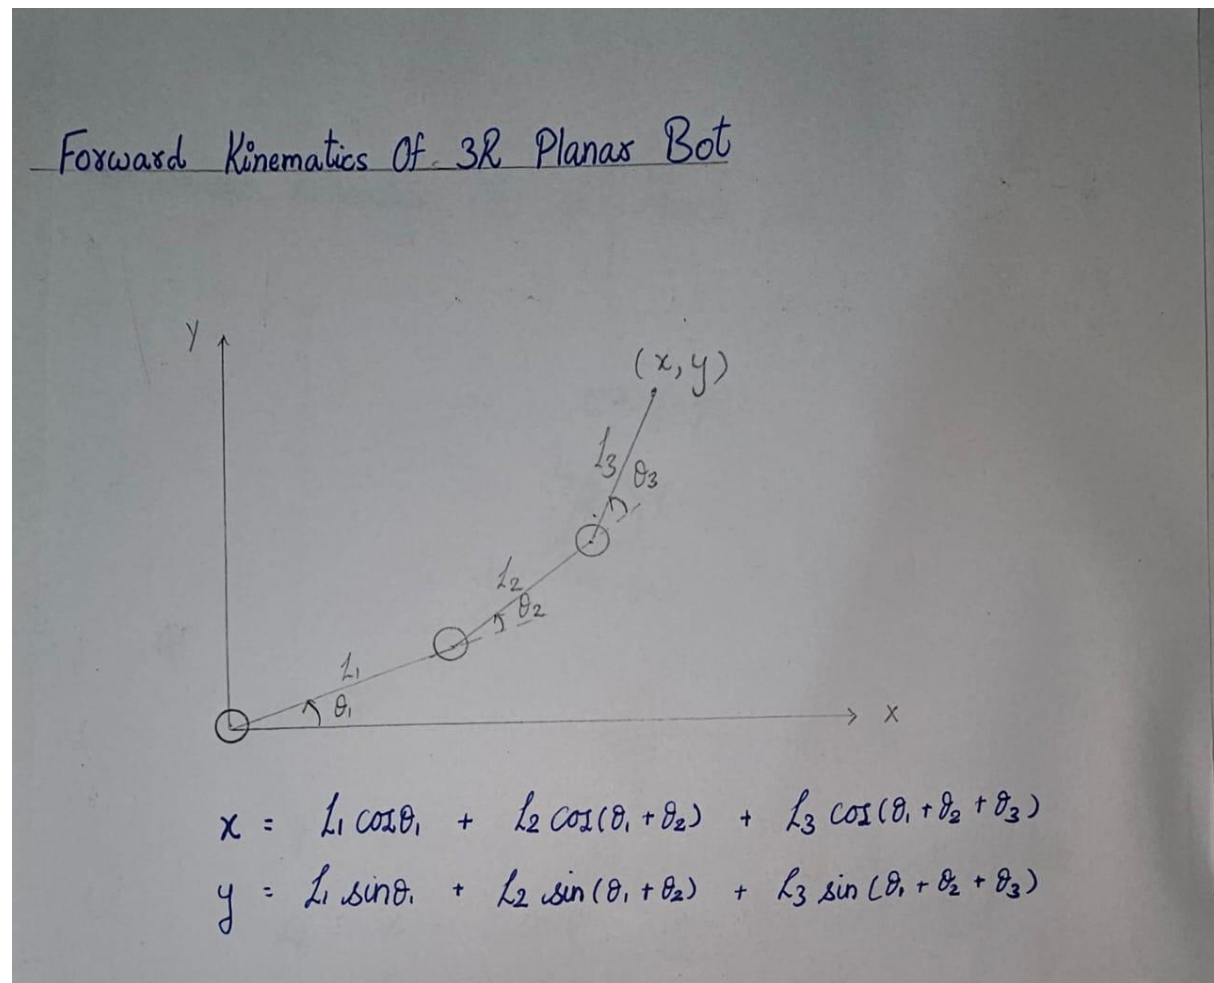 Forward Kinematics Of 3R Planar Bot
Y
(x, y)
L3
θ3
L2
θ2
L1
θ1
X
x = L1 cosθ1 + L2 cos(θ1 + θ2) + L3 cos(θ1 + θ2 + θ3)
y = L1 sinθ1 + L2 sin(θ1 + θ2) + L3 sin(θ1 + θ2 + θ3)